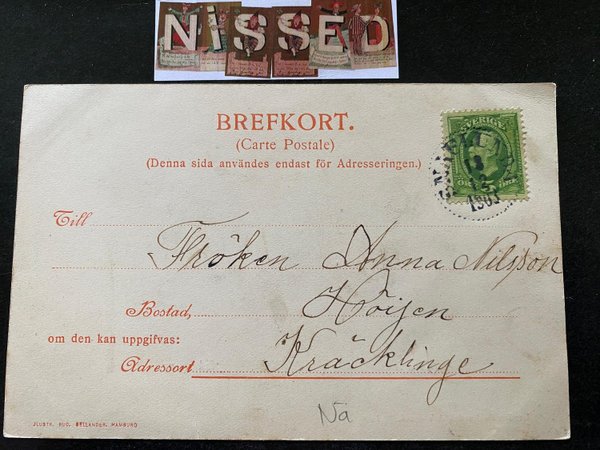 NISSED
BREFKORT.
(Carte Postale)
(Denna sida användes endast för Adresseringen.)
SVERIGE
1903
Till
Fröken Anna Nilsson
Bostad,
Höijen
om den kan uppgifvas:
Adressort
Kräcklinge
Nä
JLUSTR. RUD. BELLANDER, HAMBURG